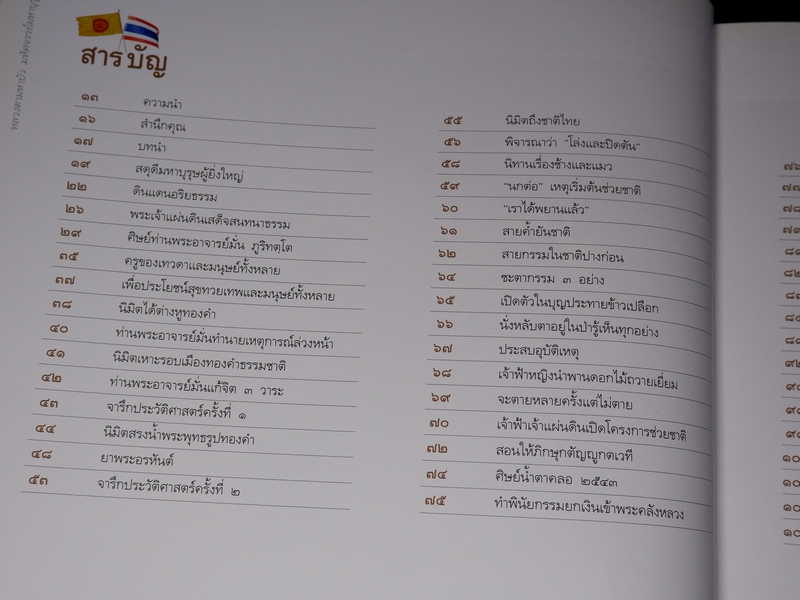 หลวงตามหาบัว มหัศจรรย์มหาบุรุษ
สารบัญ
๑๓ ความนำ
๑๖ สำนึกคุณ
๑๗ บทนำ
๑๙ สดุดีมหาบุรุษผู้ยิ่งใหญ่
๒๒ ดินแดนอริยธรรม
๒๖ พระเจ้าแผ่นดินเสด็จสนทนาธรรม
๒๙ ศิษย์ท่านพระอาจารย์มั่น ภูริทตฺโต
๓๕ ครูของเทวดาและมนุษย์ทั้งหลาย
๓๗ เพื่อประโยชน์สุขทวยเทพและมนุษย์ทั้งหลาย
๓๘ นิมิตได้ต่างหูทองคำ
๔๐ ท่านพระอาจารย์มั่นทำนายเหตุการณ์ล่วงหน้า
๔๑ นิมิตเหาะรอบเมืองทองคำธรรมชาติ
๔๒ ท่านพระอาจารย์มั่นแก้จิต ๓ วาระ
๔๓ จารึกประวัติศาสตร์ครั้งที่ ๑
๔๔ นิมิตสรงน้ำพระพุทธรูปทองคำ
๔๘ ยาพระอรหันต์
๕๓ จารึกประวัติศาสตร์ครั้งที่ ๒
๕๕ นิมิตถึงชาติไทย
๕๖ พิจารณาว่า "โล่งและปิดตัน"
๕๘ นิทานเรื่องช้างและแมว
๕๙ "นกต่อ" เหตุเริ่มต้นช่วยชาติ
๖๐ "เราได้พยานแล้ว"
๖๑ สายค้ำยันชาติ
๖๒ สายกรรมในชาติปางก่อน
๖๔ ชะตากรรม ๓ อย่าง
๖๕ เปิดตัวในบุญประทายข้าวเปลือก
๖๖ นั่งหลับตาอยู่ในป่ารู้เห็นทุกอย่าง
๖๗ ประสบอุบัติเหตุ
๖๘ เจ้าฟ้าหญิงนำพานดอกไม้ถวายเยี่ยม
๖๙ จะตายหลายครั้งแต่ไม่ตาย
๗๐ เจ้าฟ้าเจ้าแผ่นดินเปิดโครงการช่วยชาติ
๗๒ สอนให้ภิกษุกตัญญูกตเวที
๗๔ ศิษย์น้ำตาคลอ ๒๕๔๓
๗๕ ทำพินัยกรรมยกเงินเข้าพระคลังหลวง
๗๖
๗๗
๗๘